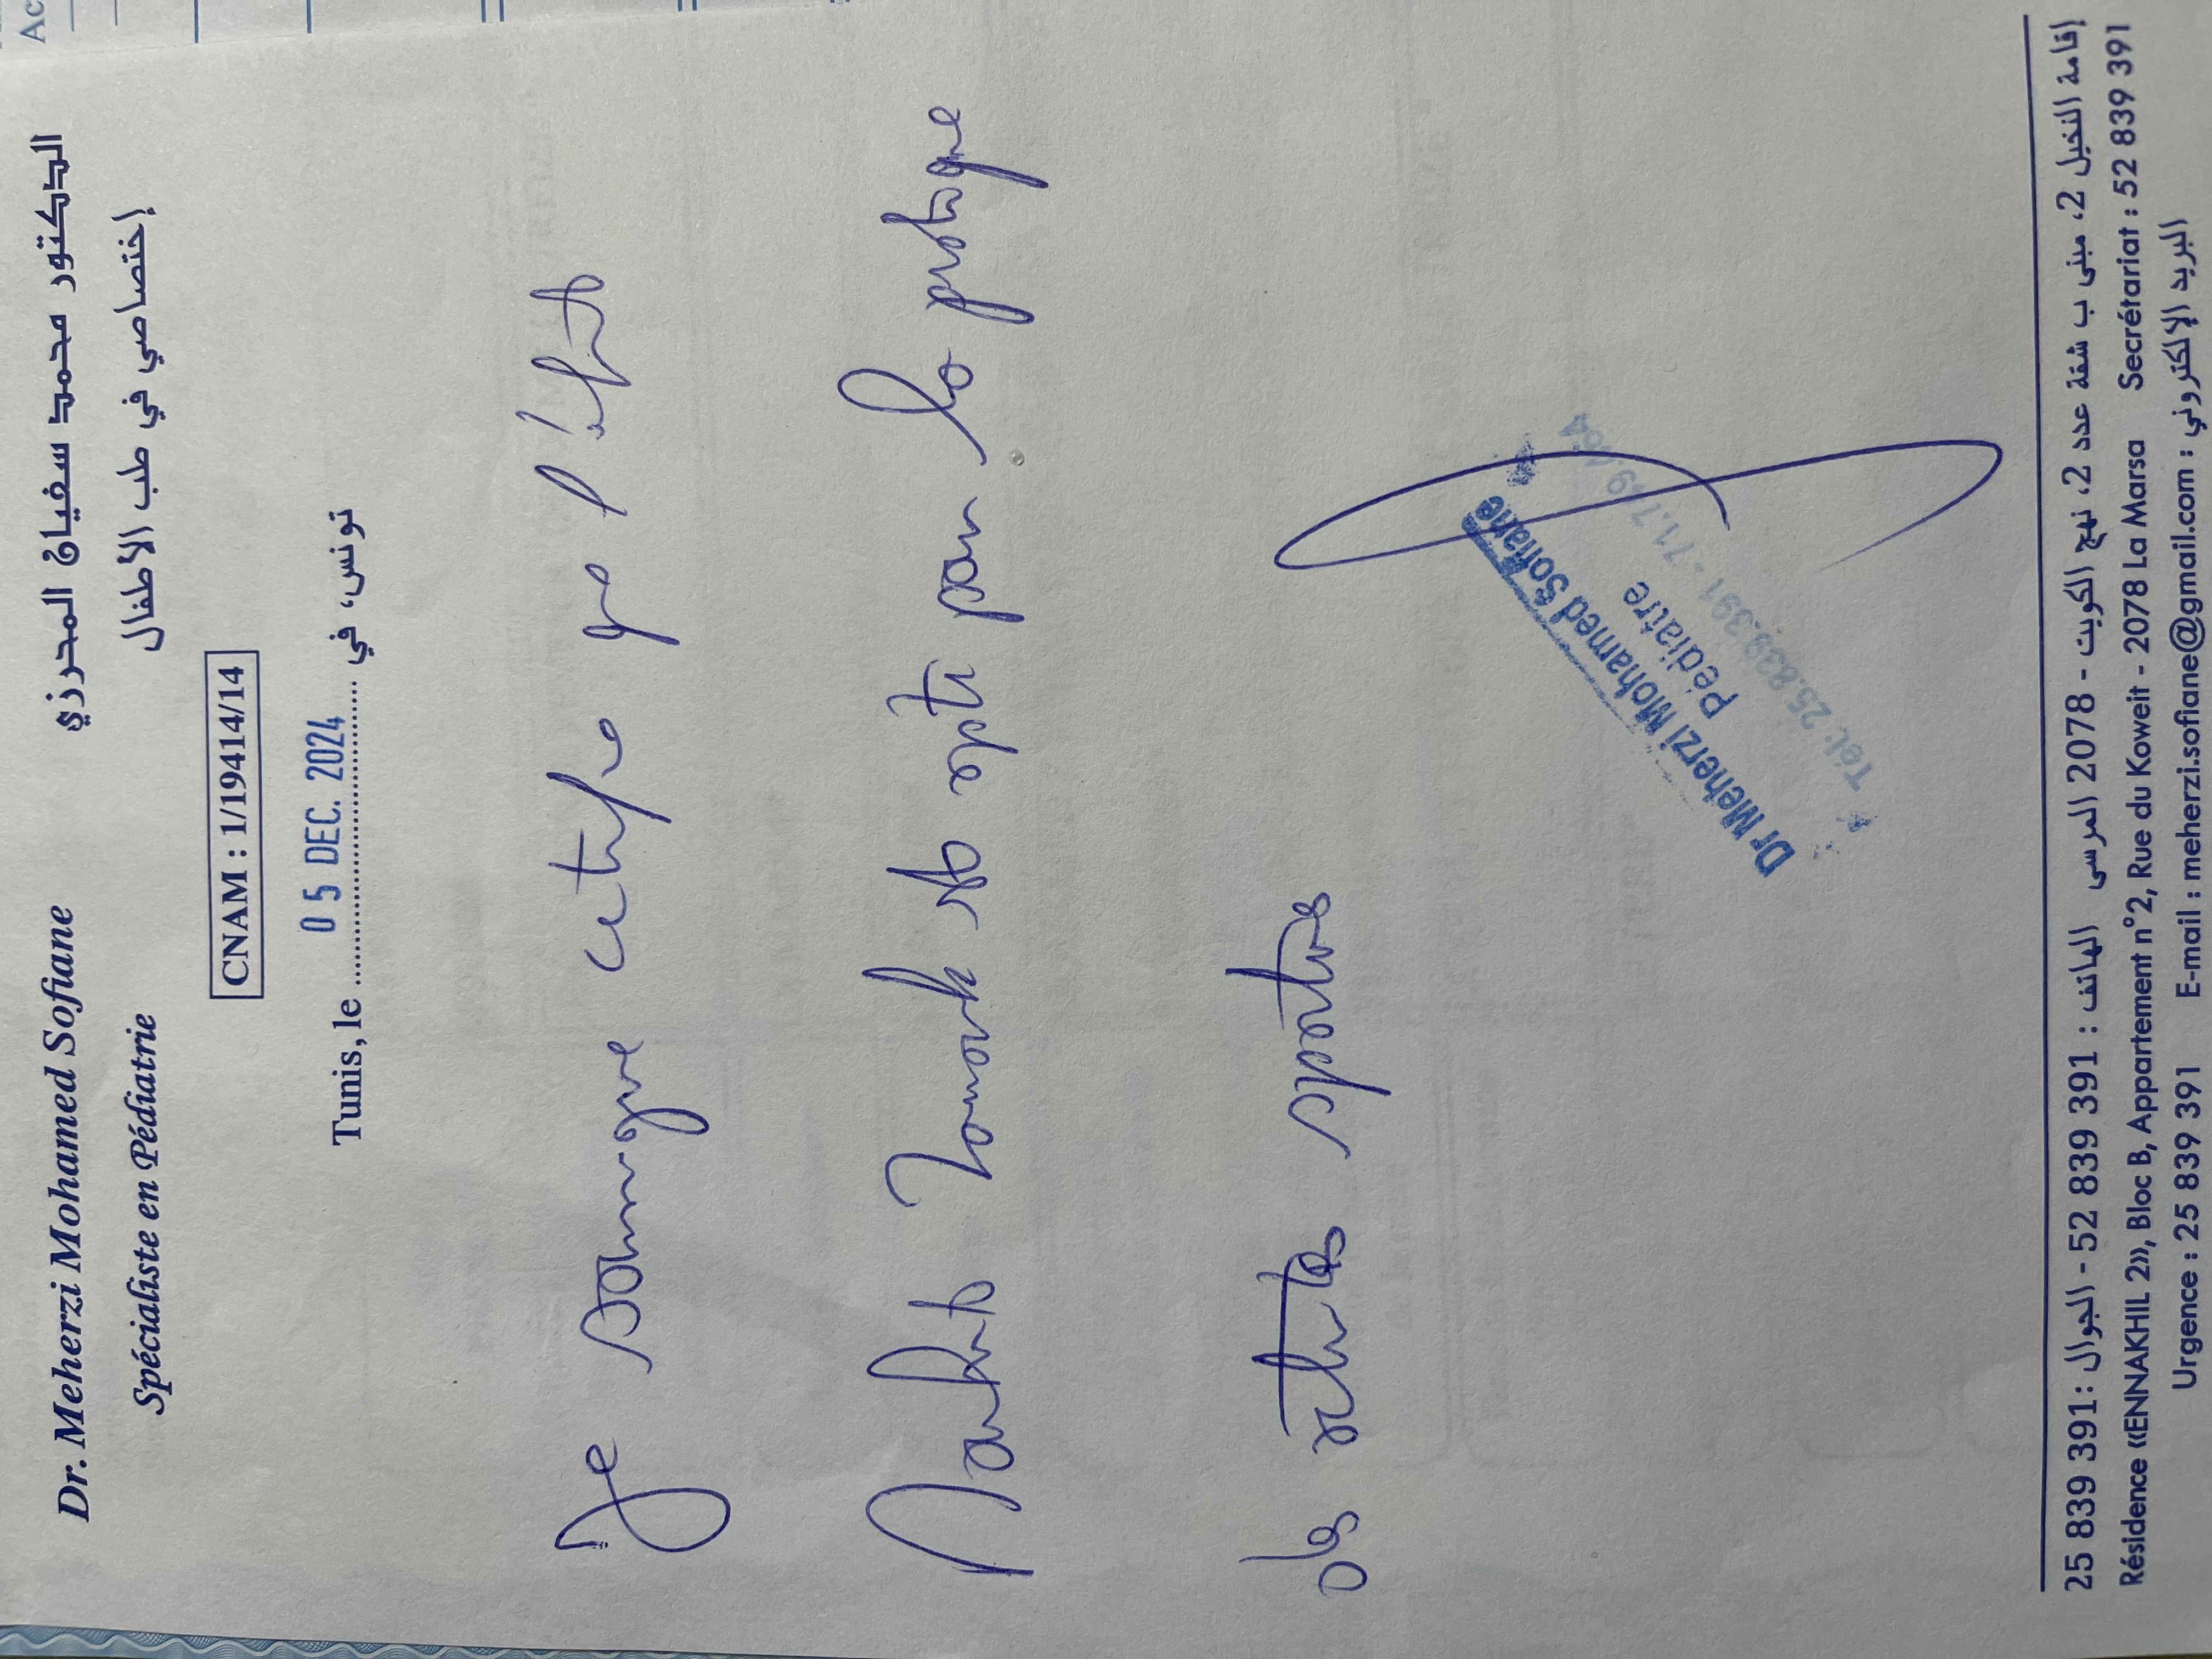 Ac
Dr. Meherzi Mohamed Sofiane
الدكتور محمد سفيان المحرزي
Spécialiste en Pédiatrie
إختصاصي في طب الأطفال
CNAM : 1/19414/14
Tunis, le 05 DEC. 2024 تونس، في
Je soussigné certifie que l'enfant
est apte pour la pratique
des activités sportives
Dr Meherzi Mohamed Sofiane
Pédiatre
Tél: 25.839.391 - 71.749.464
إقامة النخيل 2، مبنى ب شقة عدد 2، نهج الكويت - 2078 المرسى الهاتف : 391 839 52 - الجوال: 391 839 25
Résidence «ENNAKHIL 2», Bloc B, Appartement n°2, Rue du Koweit - 2078 La Marsa Secrétariat : 52 839 391
Urgence : 25 839 391 E-mail : meherzi.sofiane@gmail.com : البريد الإلكتروني